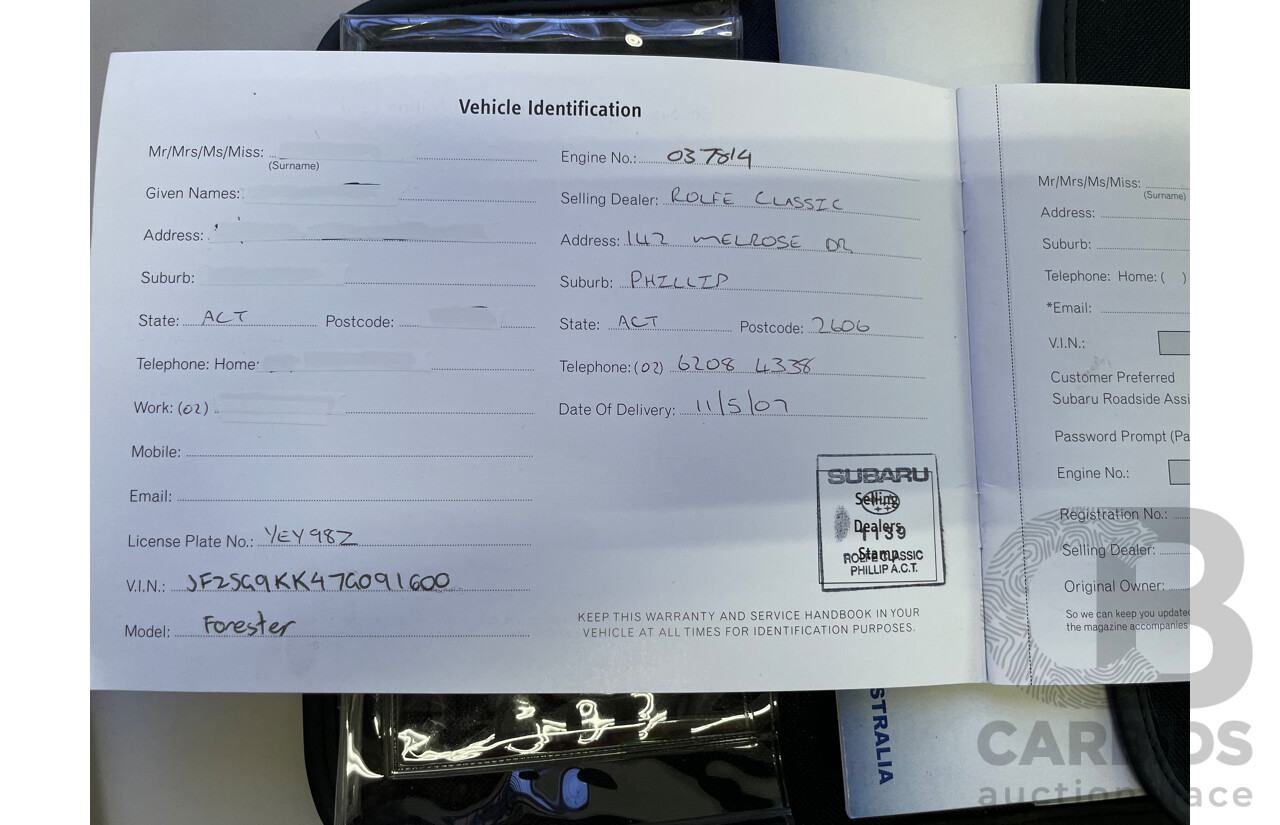 Vehicle Identification
Mr/Mrs/Ms/Miss:
(Surname)
Given Names:
Address:
Suburb:
State: ACT Postcode:
Telephone: Home:
Work: (02)
Mobile:
Email:
License Plate No.: YEY98Z
V.I.N.: JF2SG9KK47G091600
Model: Forester
Engine No.: 037814
Selling Dealer: ROLFE CLASSIC
Address: 142 MELROSE DR
Suburb: PHILLIP
State: ACT Postcode: 2606
Telephone: (02) 6208 4338
Date Of Delivery: 11/5/07
SUBARU
Selling
Dealers
1139
Stamp
ROLFE CLASSIC
PHILLIP A.C.T.
KEEP THIS WARRANTY AND SERVICE HANDBOOK IN YOUR
VEHICLE AT ALL TIMES FOR IDENTIFICATION PURPOSES.
Mr/Mrs/Ms/Miss:
(Surname)
Address:
Suburb:
Telephone: Home: ( )
*Email:
V.I.N.:
Customer Preferred
Subaru Roadside Assi
Password Prompt (Pa
Engine No.:
Registration No.:
Selling Dealer:
Original Owner:
So we can keep you updated
the magazine accompanies
STRALIA
CB
CARBIDS
auctionplace